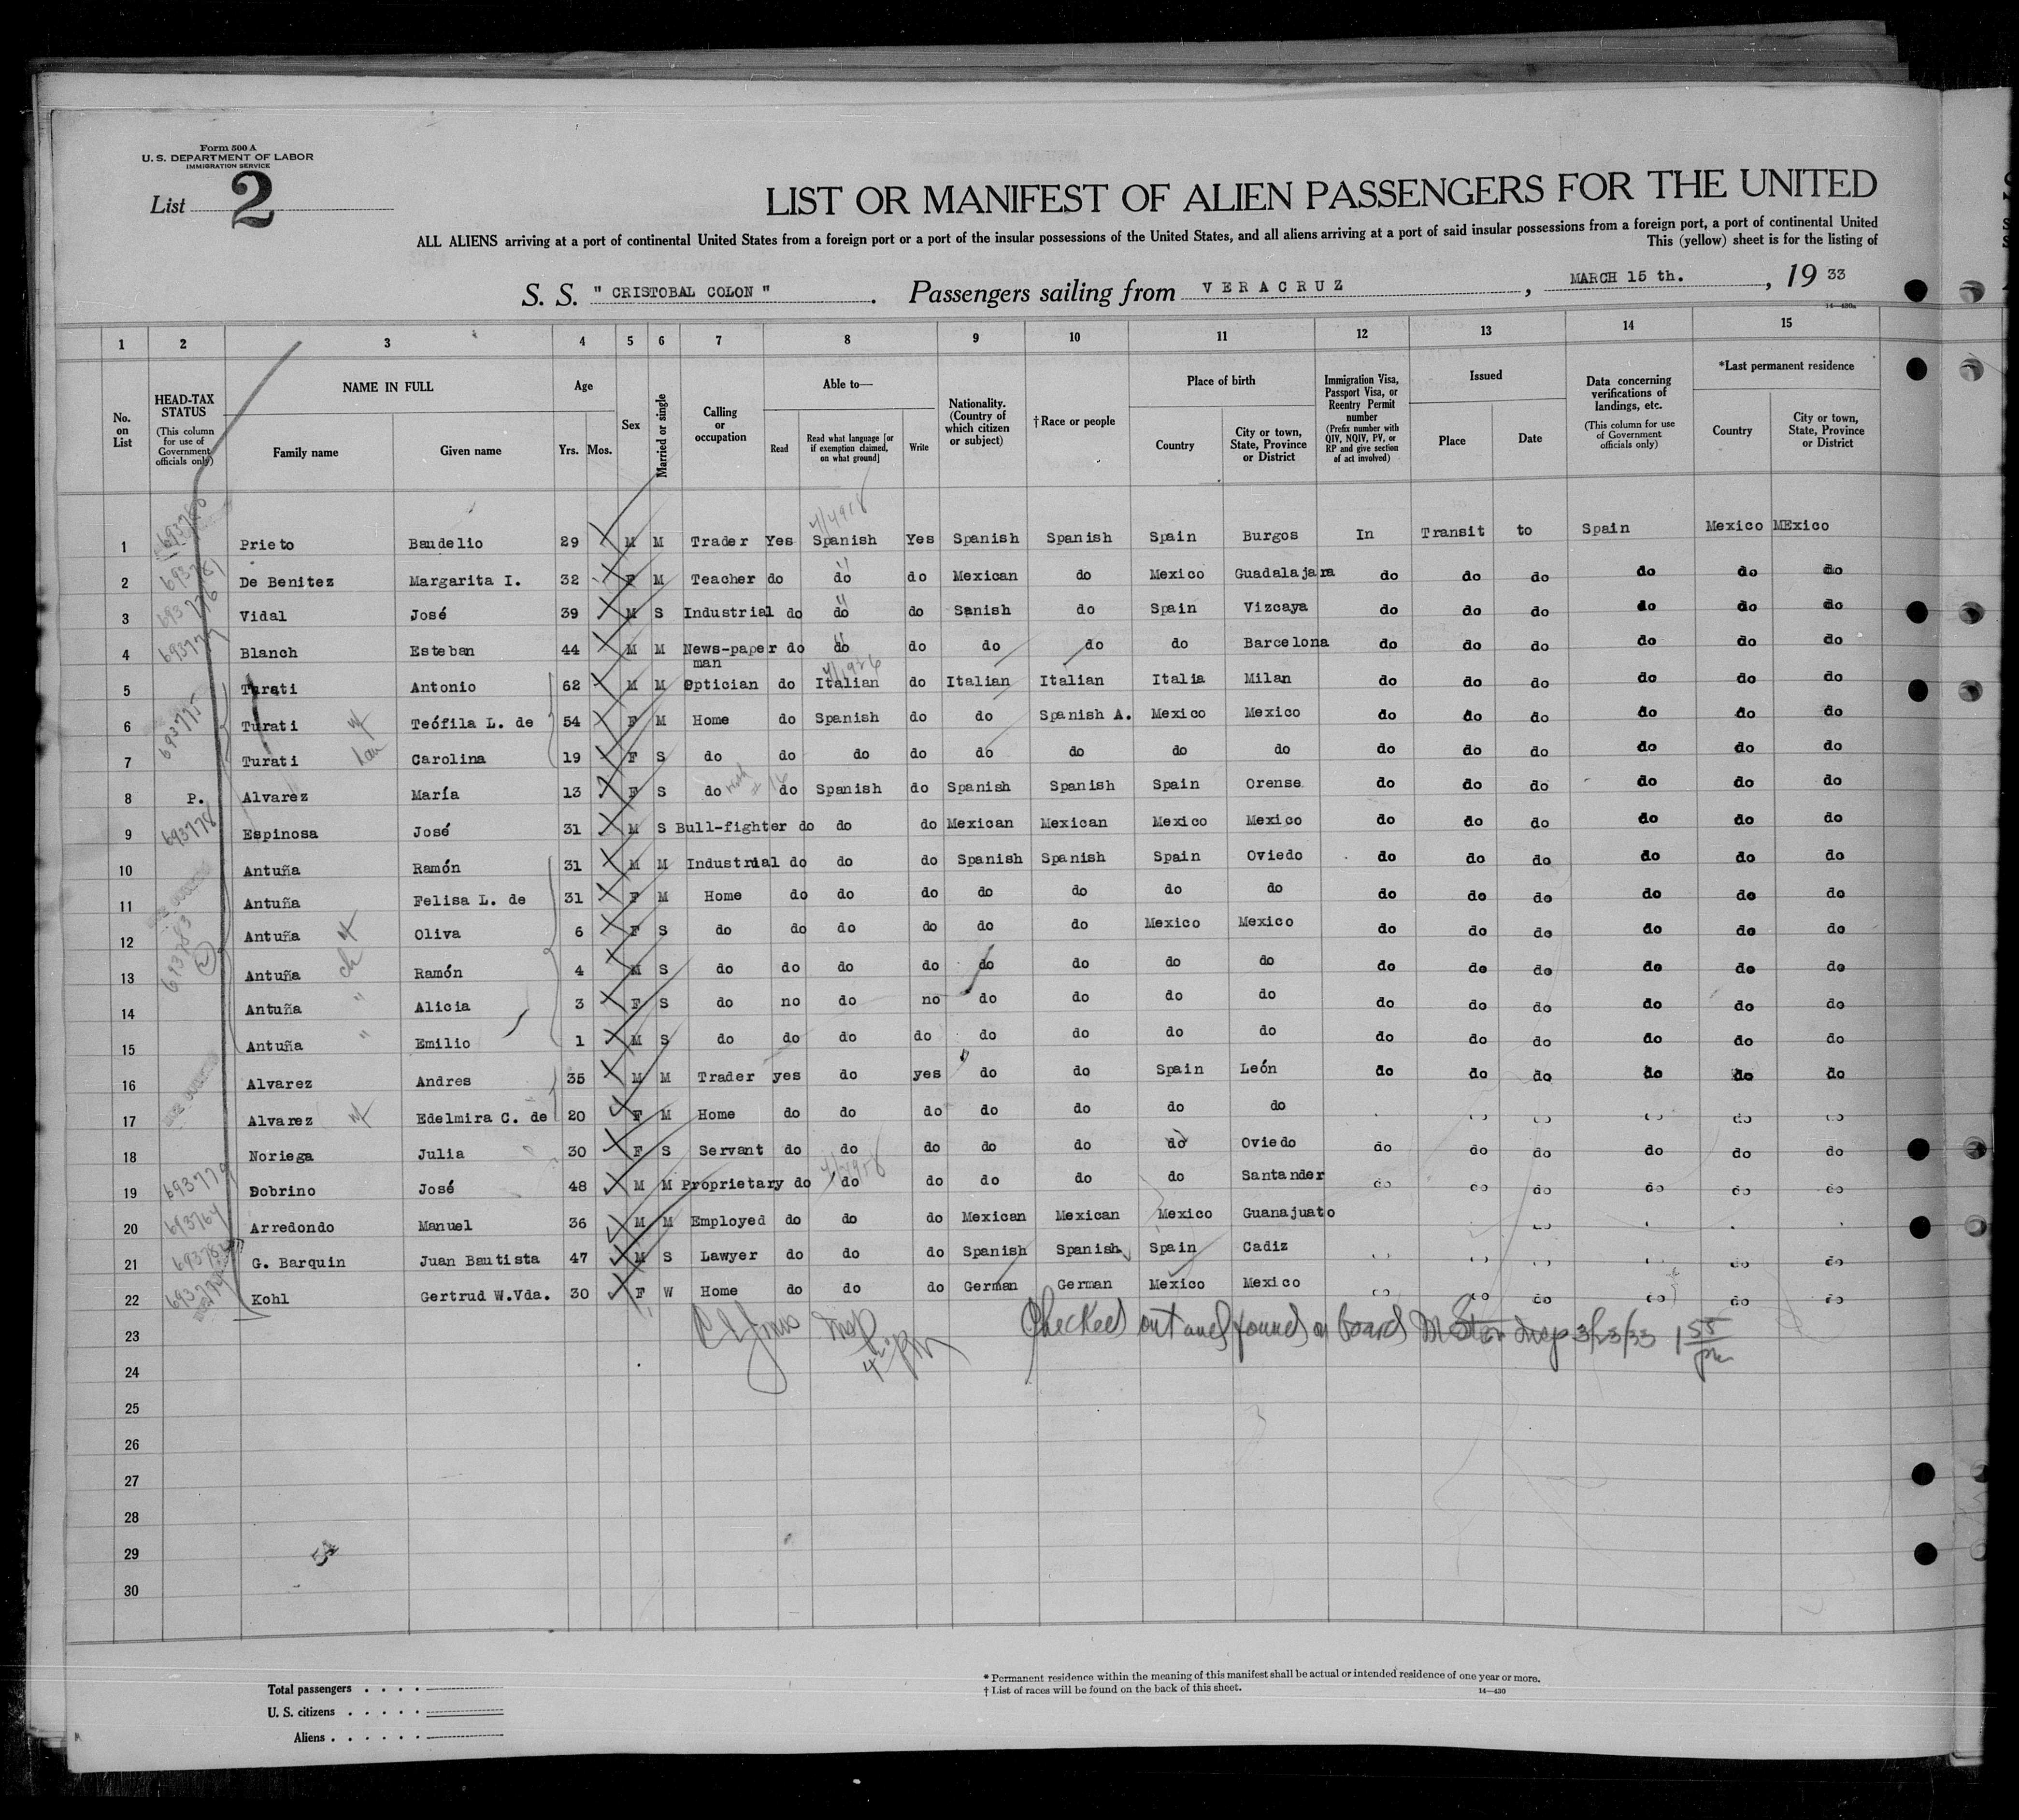 Form 500 A
U. S. DEPARTMENT OF LABOR
IMMIGRATION SERVICE
List 2
LIST OR MANIFEST OF ALIEN PASSENGERS FOR THE UNITED
ALL ALIENS arriving at a port of continental United States from a foreign port or a port of the insular possessions of the United States, and all aliens arriving at a port of said insular possessions from a foreign port, a port of continental United
This (yellow) sheet is for the listing of
S. S. " CRISTOBAL COLON " . Passengers sailing from VERACRUZ , MARCH 15 th. , 19 33
14—430a
1 2 3 4 5 6 7 8 9 10 11 12 13 14 15
No. on List
HEAD-TAX STATUS (This column for use of Government officials only)
NAME IN FULL
Family name
Given name
Age
Yrs. Mos.
Sex
Married or single
Calling or occupation
Able to—
Read
Read what language [or if exemption claimed, on what ground]
Write
Nationality. (Country of which citizen or subject)
†Race or people
Place of birth
Country
City or town, State, Province or District
Immigration Visa, Passport Visa, or Reentry Permit number (Prefix number with QIV, NQIV, PV, or RP and give section of act involved)
Issued
Place
Date
Data concerning verifications of landings, etc. (This column for use of Government officials only)
*Last permanent residence
Country
City or town, State, Province or District
1 Prieto Baudelio 29 M M Trader Yes Spanish Yes Spanish Spanish Spain Burgos In Transit to Spain Mexico MExico
2 De Benitez Margarita I. 32 F M Teacher do do do Mexican do Mexico Guadalajara do do do do do do
3 693776 Vidal José 39 M S Industrial do do do Sanish do Spain Vizcaya do do do do do do
4 693777 Blanch Esteban 44 M M News-paper man do do do do do do Barcelona do do do do do do
5 Turati Antonio 62 M M Optician do Italian do Italian Italian Italia Milan do do do do do do
6 693775 Turati Teófila L. de 54 F M Home do Spanish do do Spanish A. Mexico Mexico do do do do do do
7 Turati Carolina 19 F S do do do do do do do do do do do do do do
8 P. Alvarez María 13 F S do do Spanish do Spanish Spanish Spain Orense do do do do do do
9 693778 Espinosa José 31 M S Bull-fighter do do do Mexican Mexican Mexico Mexico do do do do do do
10 Antuña Ramón 31 M M Industrial do do do Spanish Spanish Spain Oviedo do do do do do do
11 Antuña Felisa L. de 31 F M Home do do do do do do do do do do do do do
12 Antuña Oliva 6 F S do do do do do do Mexico Mexico do do do do do do
13 693783 Antuña ch Ramón 4 M S do do do do do do do do do do do do do do
14 Antuña " Alicia 3 F S do no do no do do do do do do do do do do
15 Antuña " Emilio 1 M S do do do do do do do do do do do do do do
16 Alvarez Andres 35 M M Trader yes do yes do do Spain León do do do do do do
17 Alvarez Edelmira C. de 20 F M Home do do do do do do do do
18 Noriega Julia 30 F S Servant do do do do do do Oviedo do do do do do do
19 693779 Dobrino José 48 M M Proprietary do do do do do do Santander do do do do do do
20 693764 Arredondo Manuel 36 M M Employed do do do Mexican Mexican Mexico Guanajuato
21 G. Barquin Juan Bautista 47 M S Lawyer do do do Spanish Spanish Spain Cadiz do do
22 Kohl Gertrud W.Vda. 30 F W Home do do do German German Mexico Mexico do do do do do do
23 Checked out and found on board Insp 3/23/33 1 55 pm
24
25
26
27
28
29
30
Total passengers . . . .
U. S. citizens . . . . .
Aliens . . . . . .
* Permanent residence within the meaning of this manifest shall be actual or intended residence of one year or more.
† List of races will be found on the back of this sheet.
14—430